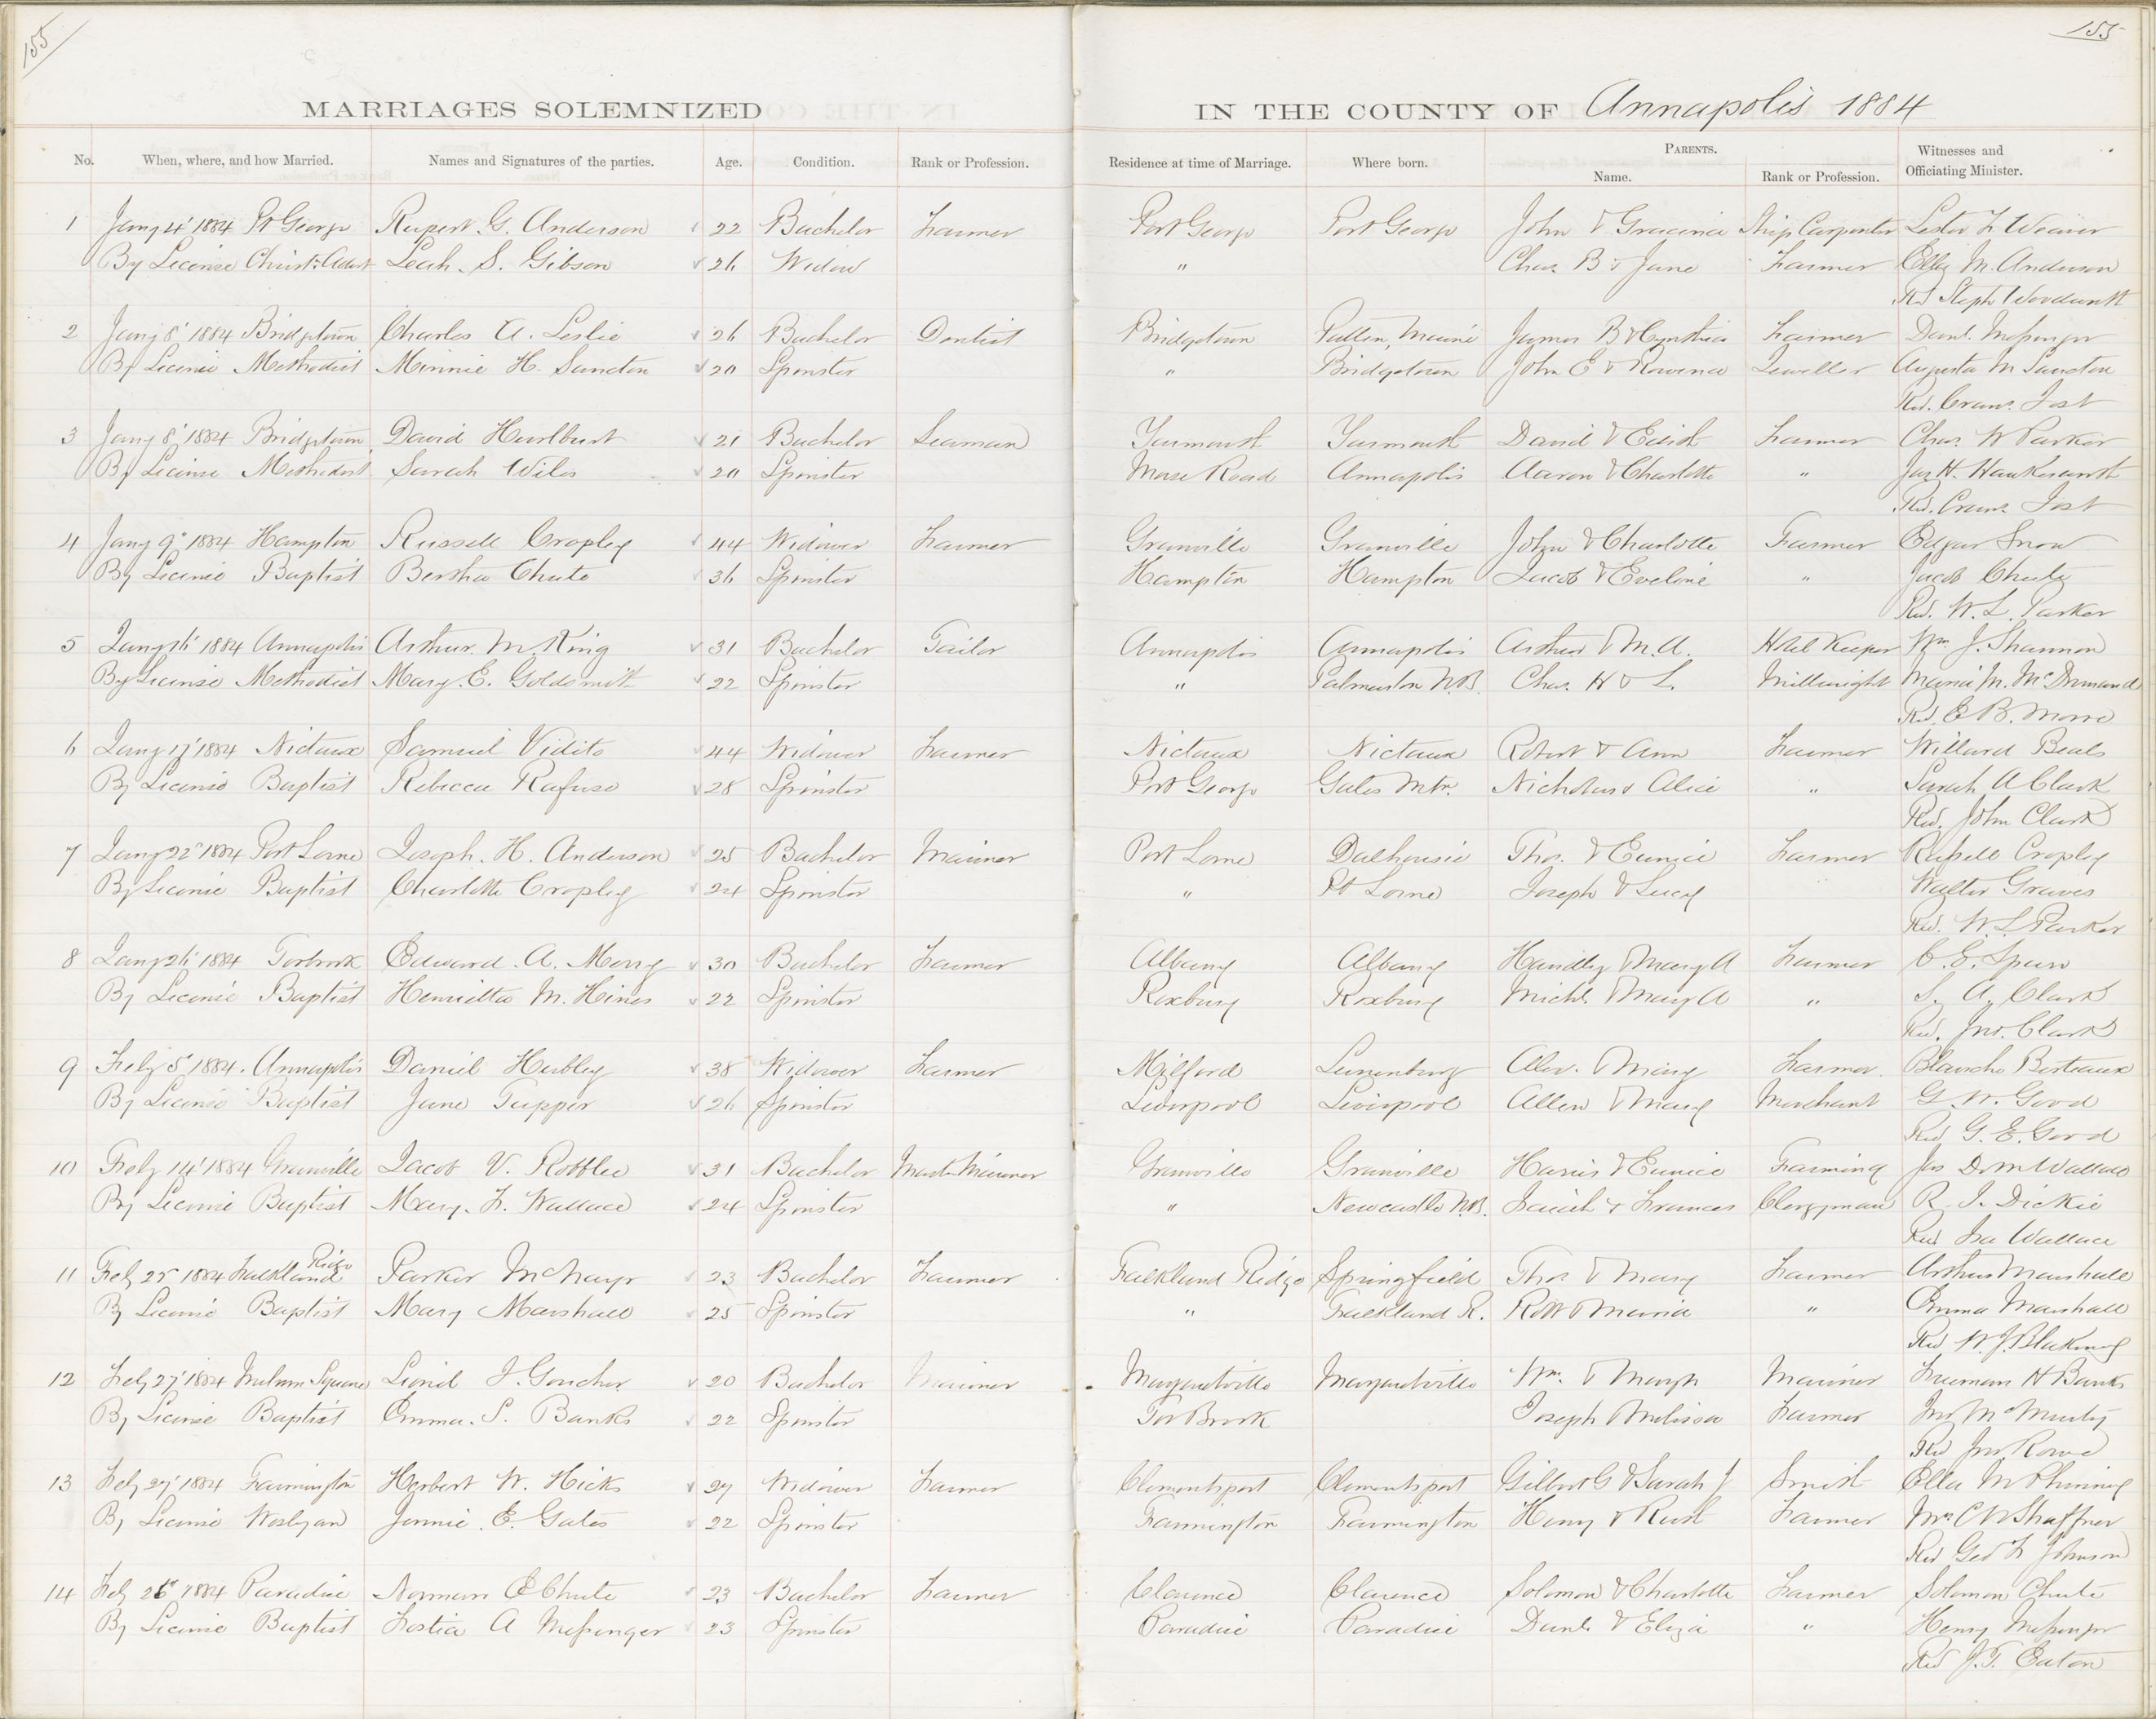 155
155
MARRIAGES SOLEMNIZED IN THE COUNTY OF Annapolis 1884
No. When, where, and how Married. Names and Signatures of the parties. Age. Condition. Rank or Profession. Residence at time of Marriage. Where born. PARENTS. Name. Rank or Profession. Witnesses and Officiating Minister.
1 Jany 4' 1884 Pt George Rupert G. Anderson 22 Bachelor Farmer Port George Port George John & Gracina Ship Carpenter Lester L Weaver
By License Christn. Advt Leah S. Gibson 26 Widow " Chas B & Jane Farmer Ella M. Anderson
Rd Steph Woodworth
2 Jany 8' 1884 Bridgetown Charles A. Leslie 26 Bachelor Dentist Bridgetown Patten, Maine James B & Cynthia Farmer Danl. Messenger
By License Methodist Minnie H. Sancton 20 Spinster " Bridgetown John E & Rowena Jeweller Augusta M Sancton
Rd. Crans. Jost
3 Jany 8' 1884 Bridgetown David Hurlburt 21 Bachelor Seaman Yarmouth Yarmouth David & Edith Farmer Chas. W Parker
By License Methodist Sarah Wiles 20 Spinster Morse Road Annapolis Aaron & Charlotte " Jas H. Hawkesworth
Rd. Crans. Jost
4 Jany 9' 1884 Hampton Russell Cropley 44 Widower Farmer Granville Granville John & Charlotte Farmer Edgar Snow
By License Baptist Bertha Chute 36 Spinster Hampton Hampton Jacob & Eveline " Jacob Chute
Rd. W. L. Parker
5 Jany 16' 1884 Annapolis Arthur M. King 31 Bachelor Tailor Annapolis Annapolis Arthur & M. A. Hotel Keeper Wm J. Shannon
By License Methodist Mary E. Goldsmith 22 Spinster " Palmerston N.B. Chas. H & L. Millwright Mania M. McDormand
Rd. E. B. Moore
6 Jany 17' 1884 Nictaux Samuel Vidito 44 Widower Farmer Nictaux Nictaux Robert & Ann Farmer Willard Beals
By License Baptist Rebecca Rafuse 28 Spinster Port George Gates Mtn. Nicholas & Alice " Sarah A Clark
Rd. John Clark
7 Jany 22' 1884 Port Lorne Joseph H. Anderson 25 Bachelor Mariner Port Lorne Dalhousie Thos. & Eunice Farmer Russell Cropley
By License Baptist Charlotte Cropley 24 Spinster " Pt Lorne Joseph & Lucy Walter Graves
Rd. W. L. Parker
8 Jany 26' 1884 Torbrook Edward A. Merry 30 Bachelor Farmer Albany Albany Handley & Mary A Farmer C. E. Spurr
By License Baptist Henrietta M. Hines 22 Spinster Roxbury Roxbury Michl. & Mary A " S. A. Clark
Rd. Jno. Clark
9 Feby 5' 1884. Annapolis Daniel Hubley 38 Widower Farmer Milford Lunenburg Alex. & Mary Farmer. Blanche Berteaux
By License Baptist Jane Tupper 26 Spinster Liverpool Liverpool Allen & Mary Merchant G. W. Good
Rd G. E. Good
10 Feby 14' 1884 Granville Jacob V. Robblee 31 Bachelor Master Mariner Granville Granville Harris & Eunice Farming Jas D. M Wallace
By License Baptist Mary F. Wallace 24 Spinster " Newcastle N.B. Isaiah & Frances Clergyman R. J. Dickie
Rd Isa Wallace
11 Feby 25' 1884 Falkland Ridge Parker McNayr 23 Bachelor Farmer Falkland Ridge Springfield Thos & Mary Farmer Arthur Marshall
By License Baptist Mary Marshall 25 Spinster " Falkland R. Robt & Maria " Emma Marshall
Rd W. J. Blakeney
12 Feby 27' 1884 Melvern Square Lionel J. Goucher 20 Bachelor Mariner Margaretville Margaretville Wm. & Margt Mariner Freeman H Banks
By License Baptist Emma. S. Banks 22 Spinster Tor Brook Joseph & Melissa Farmer
Rd Jno Rowe
13 Feby 27' 1884 Farmington Herbert W. Hicks 27 Widower Farmer Clementsport Clementsport Gilbert G & Sarah J Smith Ella M Phinney
By License Wesleyan Jennie E. Gates 22 Spinster Farmington Farmington Henry & Ruth Farmer Mrs. C W Shaffner
Rd Geo F Johnson
14 Feby 26' 1884 Paradise Norman E Chute 23 Bachelor Farmer Clarence Clarence Solomon & Charlotte Farmer Solomon Chute
By License Baptist Lostia A Messenger 23 Spinster Paradise Paradise Danl. & Eliza " Henry Messenger
Rd J. T. Eaton